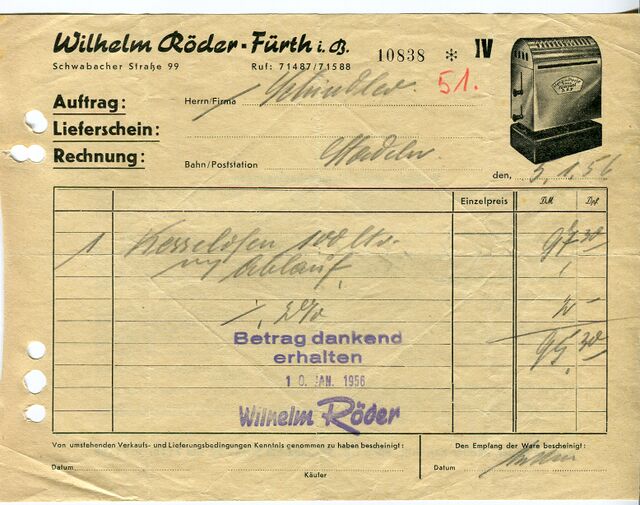 Wilhelm Röder - Fürth i. B.
10838 * IV
Schwabacher Straße 99 Ruf: 71487/71588
51.
Auftrag:
Herrn/Firma Schindler
Lieferschein:
Rechnung:
Bahn/Poststation
den, 5.1.56
Einzelpreis DM Dpf.
1 Kesselofen 100 ltr. 97 30
m/ Ablauf
./. 2% 2 –
95,30
Betrag dankend
erhalten
10. JAN. 1956
Wilhelm Röder
Von umstehenden Verkaufs- und Lieferungsbedingungen Kenntnis genommen zu haben bescheinigt:
Den Empfang der Ware bescheinigt:
Datum Käufer Datum